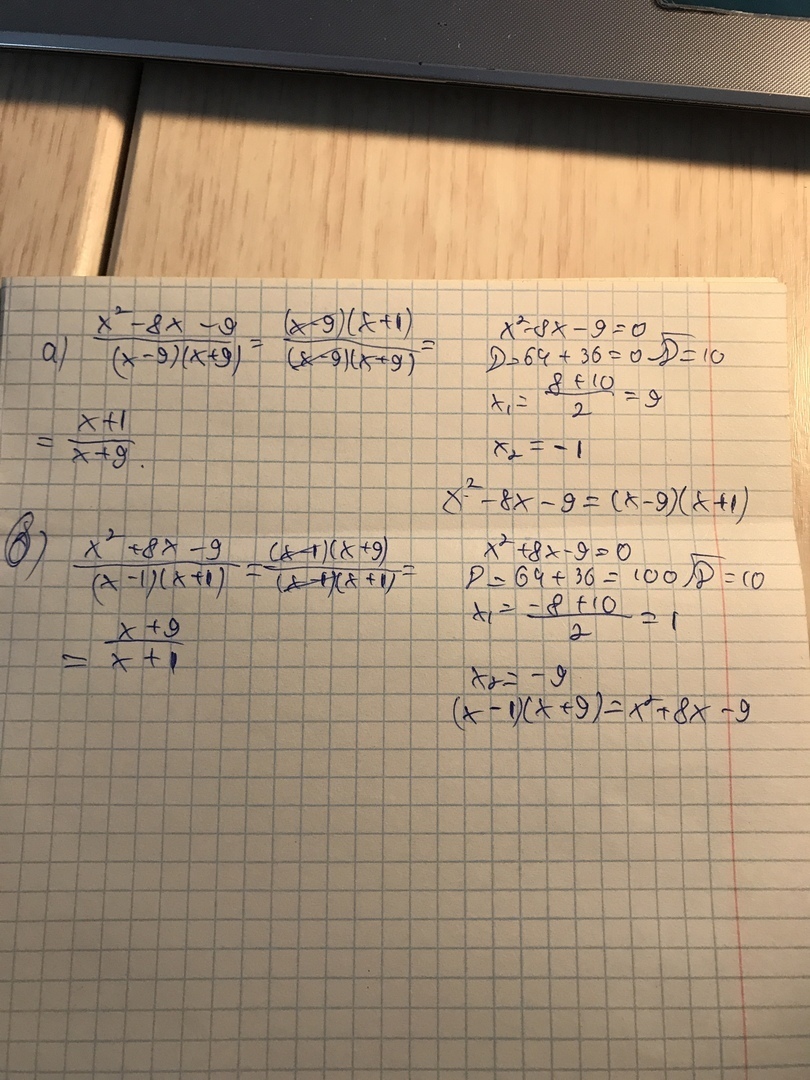 а) (x² - 8x - 9)/((x-9)(x+9)) = ((x-9)(x+1))/((x-9)(x+9)) =
= (x+1)/(x+9).
x² - 8x - 9 = 0
D = 64 + 36 = 0 √D = 10
x₁ = (8+10)/2 = 9
x₂ = -1
x² - 8x - 9 = (x-9)(x+1)
б) (x² + 8x - 9)/((x-1)(x+1)) = ((x-1)(x+9))/((x-1)(x+1)) =
= (x+9)/(x+1)
x² + 8x - 9 = 0
D = 64 + 36 = 100 √D = 10
x₁ = (-8+10)/2 = 1
x₂ = -9
(x-1)(x+9) = x² + 8x - 9